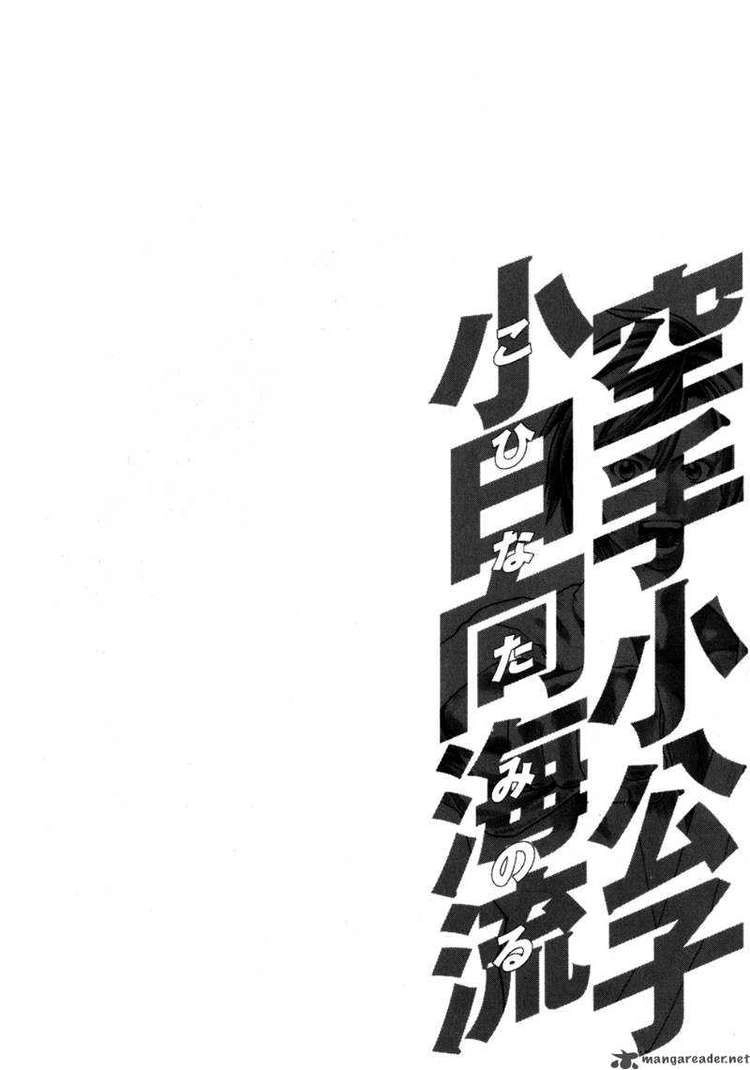 空手小公子
小日向海流
こひなたみのる
mangareader.net